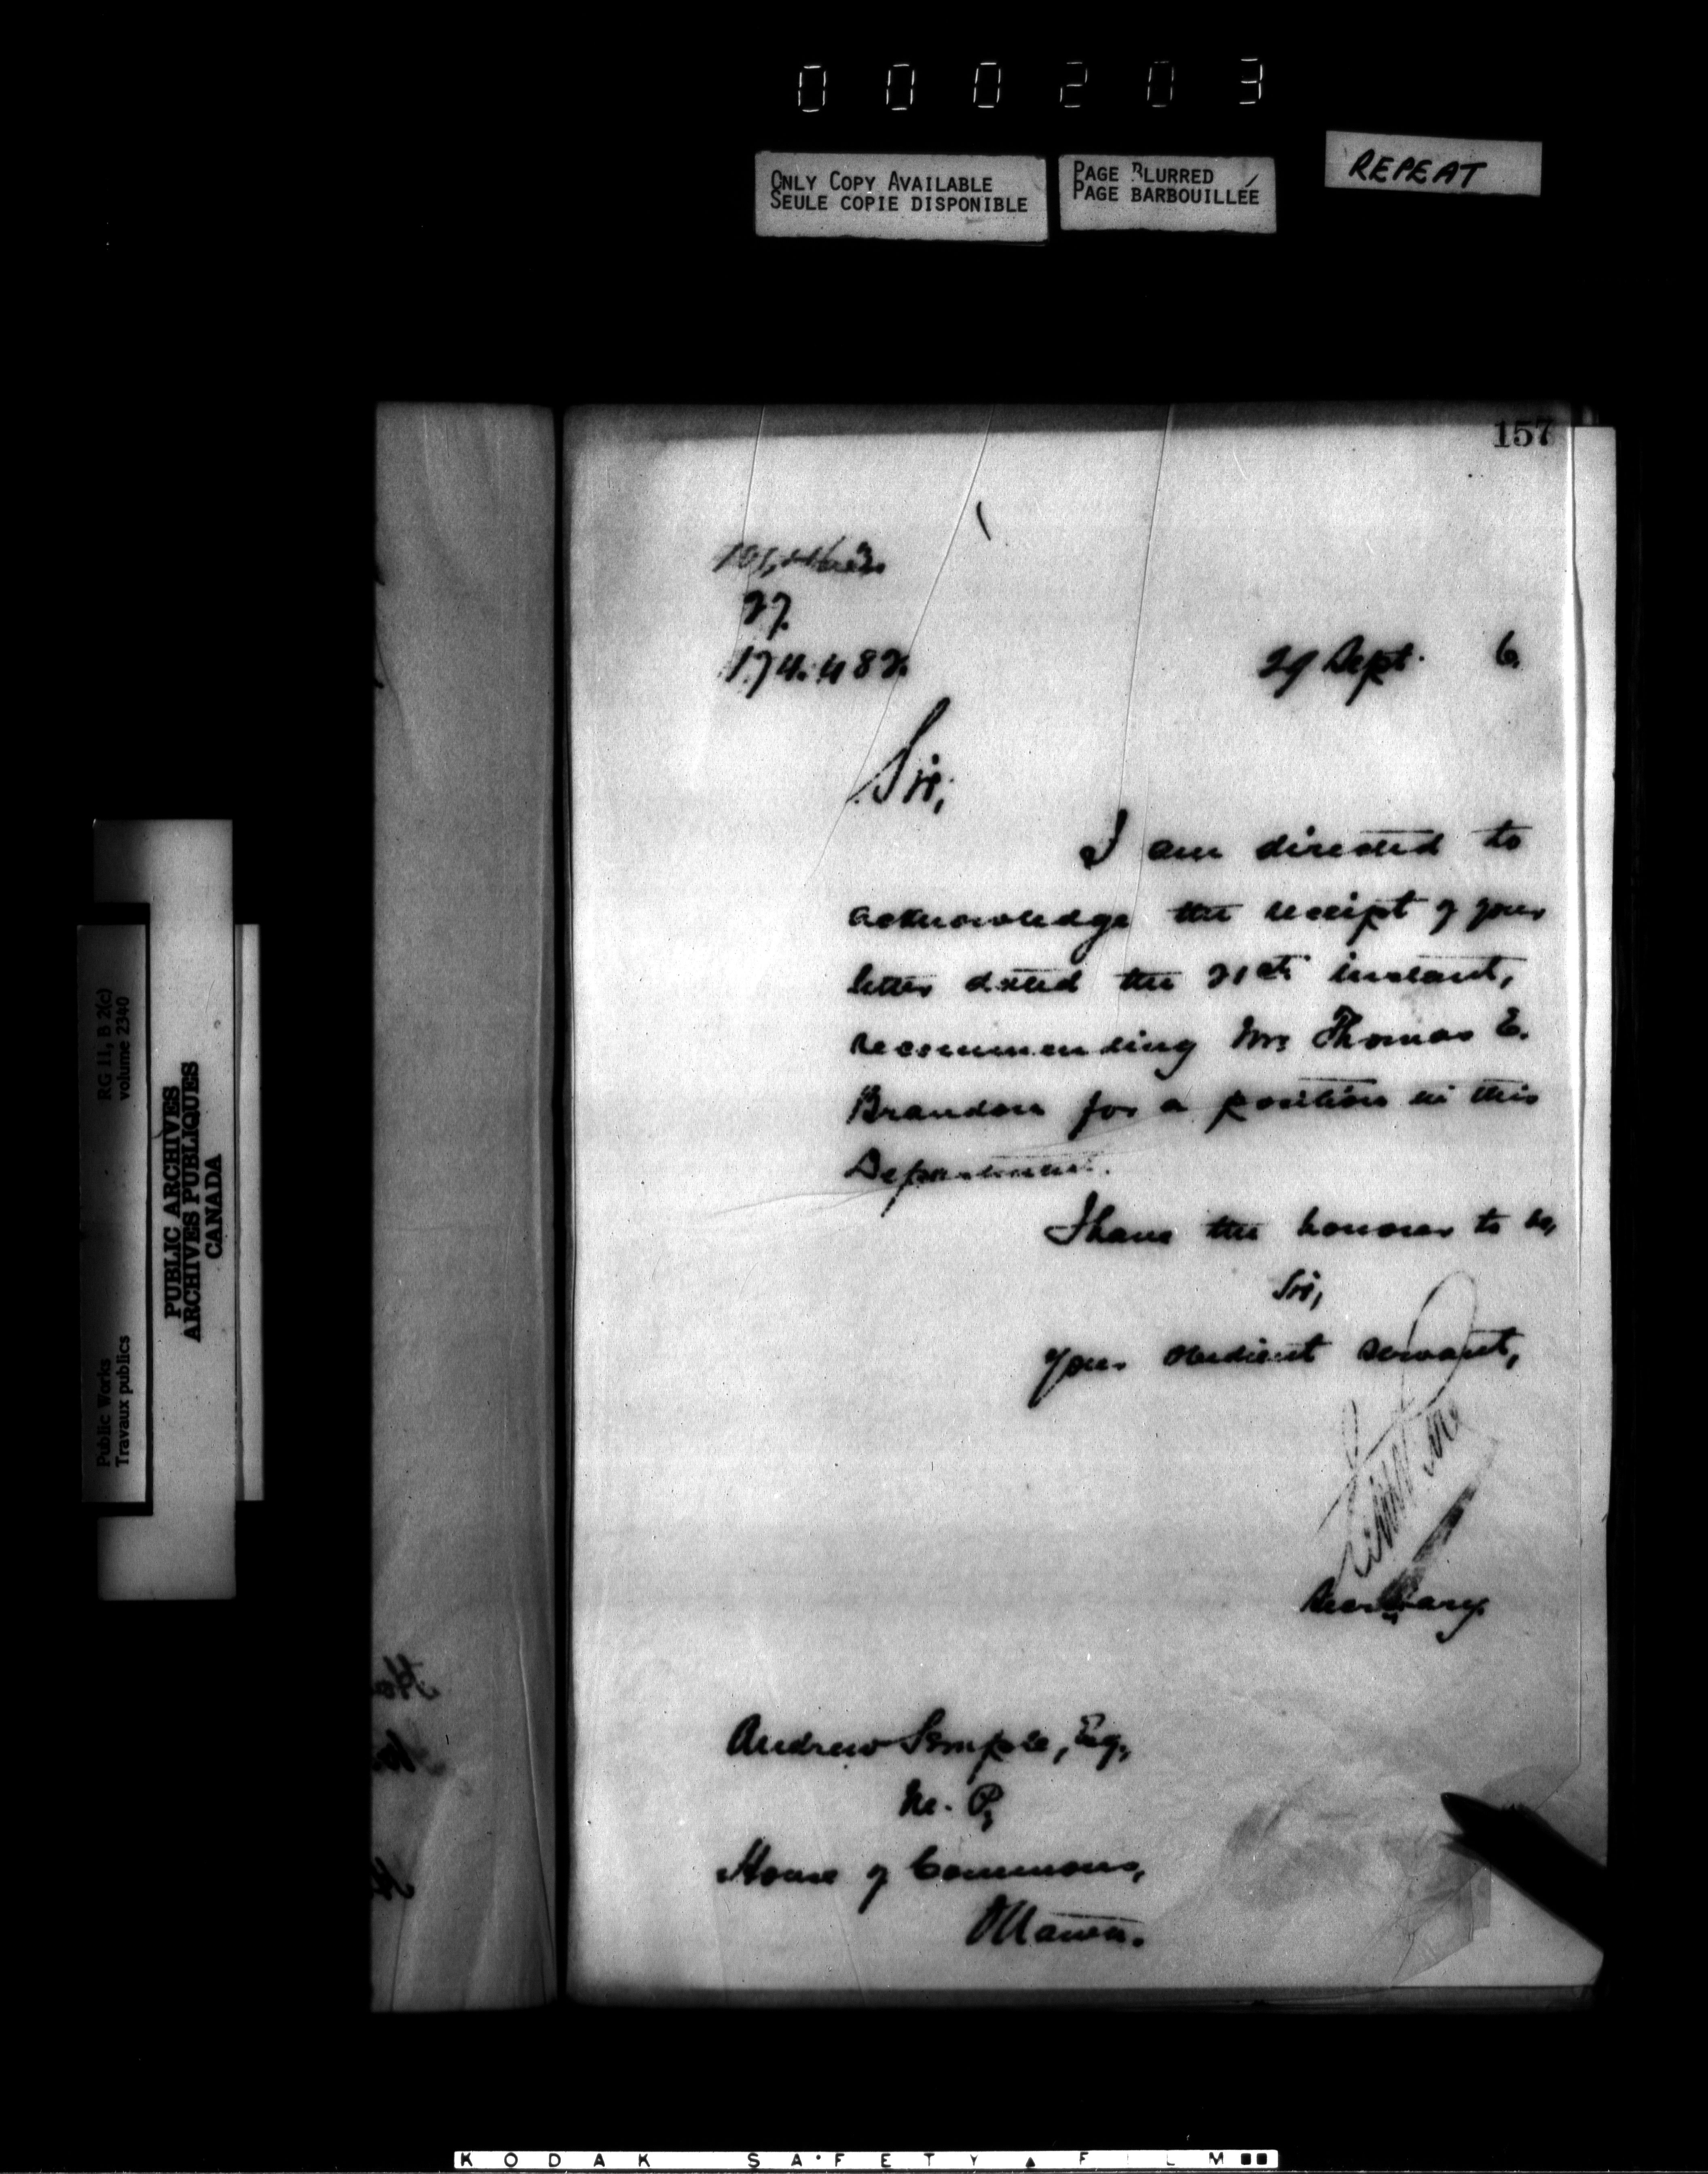 000203
ONLY COPY AVAILABLE
SEULE COPIE DISPONIBLE
PAGE BLURRED
PAGE BARBOUILLÉE
REPEAT
157
27.
174.482.
29 Sept. 6.
Sir,
I am directed to
acknowledge the receipt of your
letter dated the 21st instant,
recommending Mr. Thomas E.
Brandon for a position in this
Department.
I have the honour to be,
Sir,
Your obedient servant,
Secretary.
Andrew Semple, Esq,
M. P,
House of Commons,
Ottawa.
RG 11, B 2(c)
volume 2340
Public Works
Travaux publics
PUBLIC ARCHIVES
ARCHIVES PUBLIQUES
CANADA
KODAK SAFETY FILM